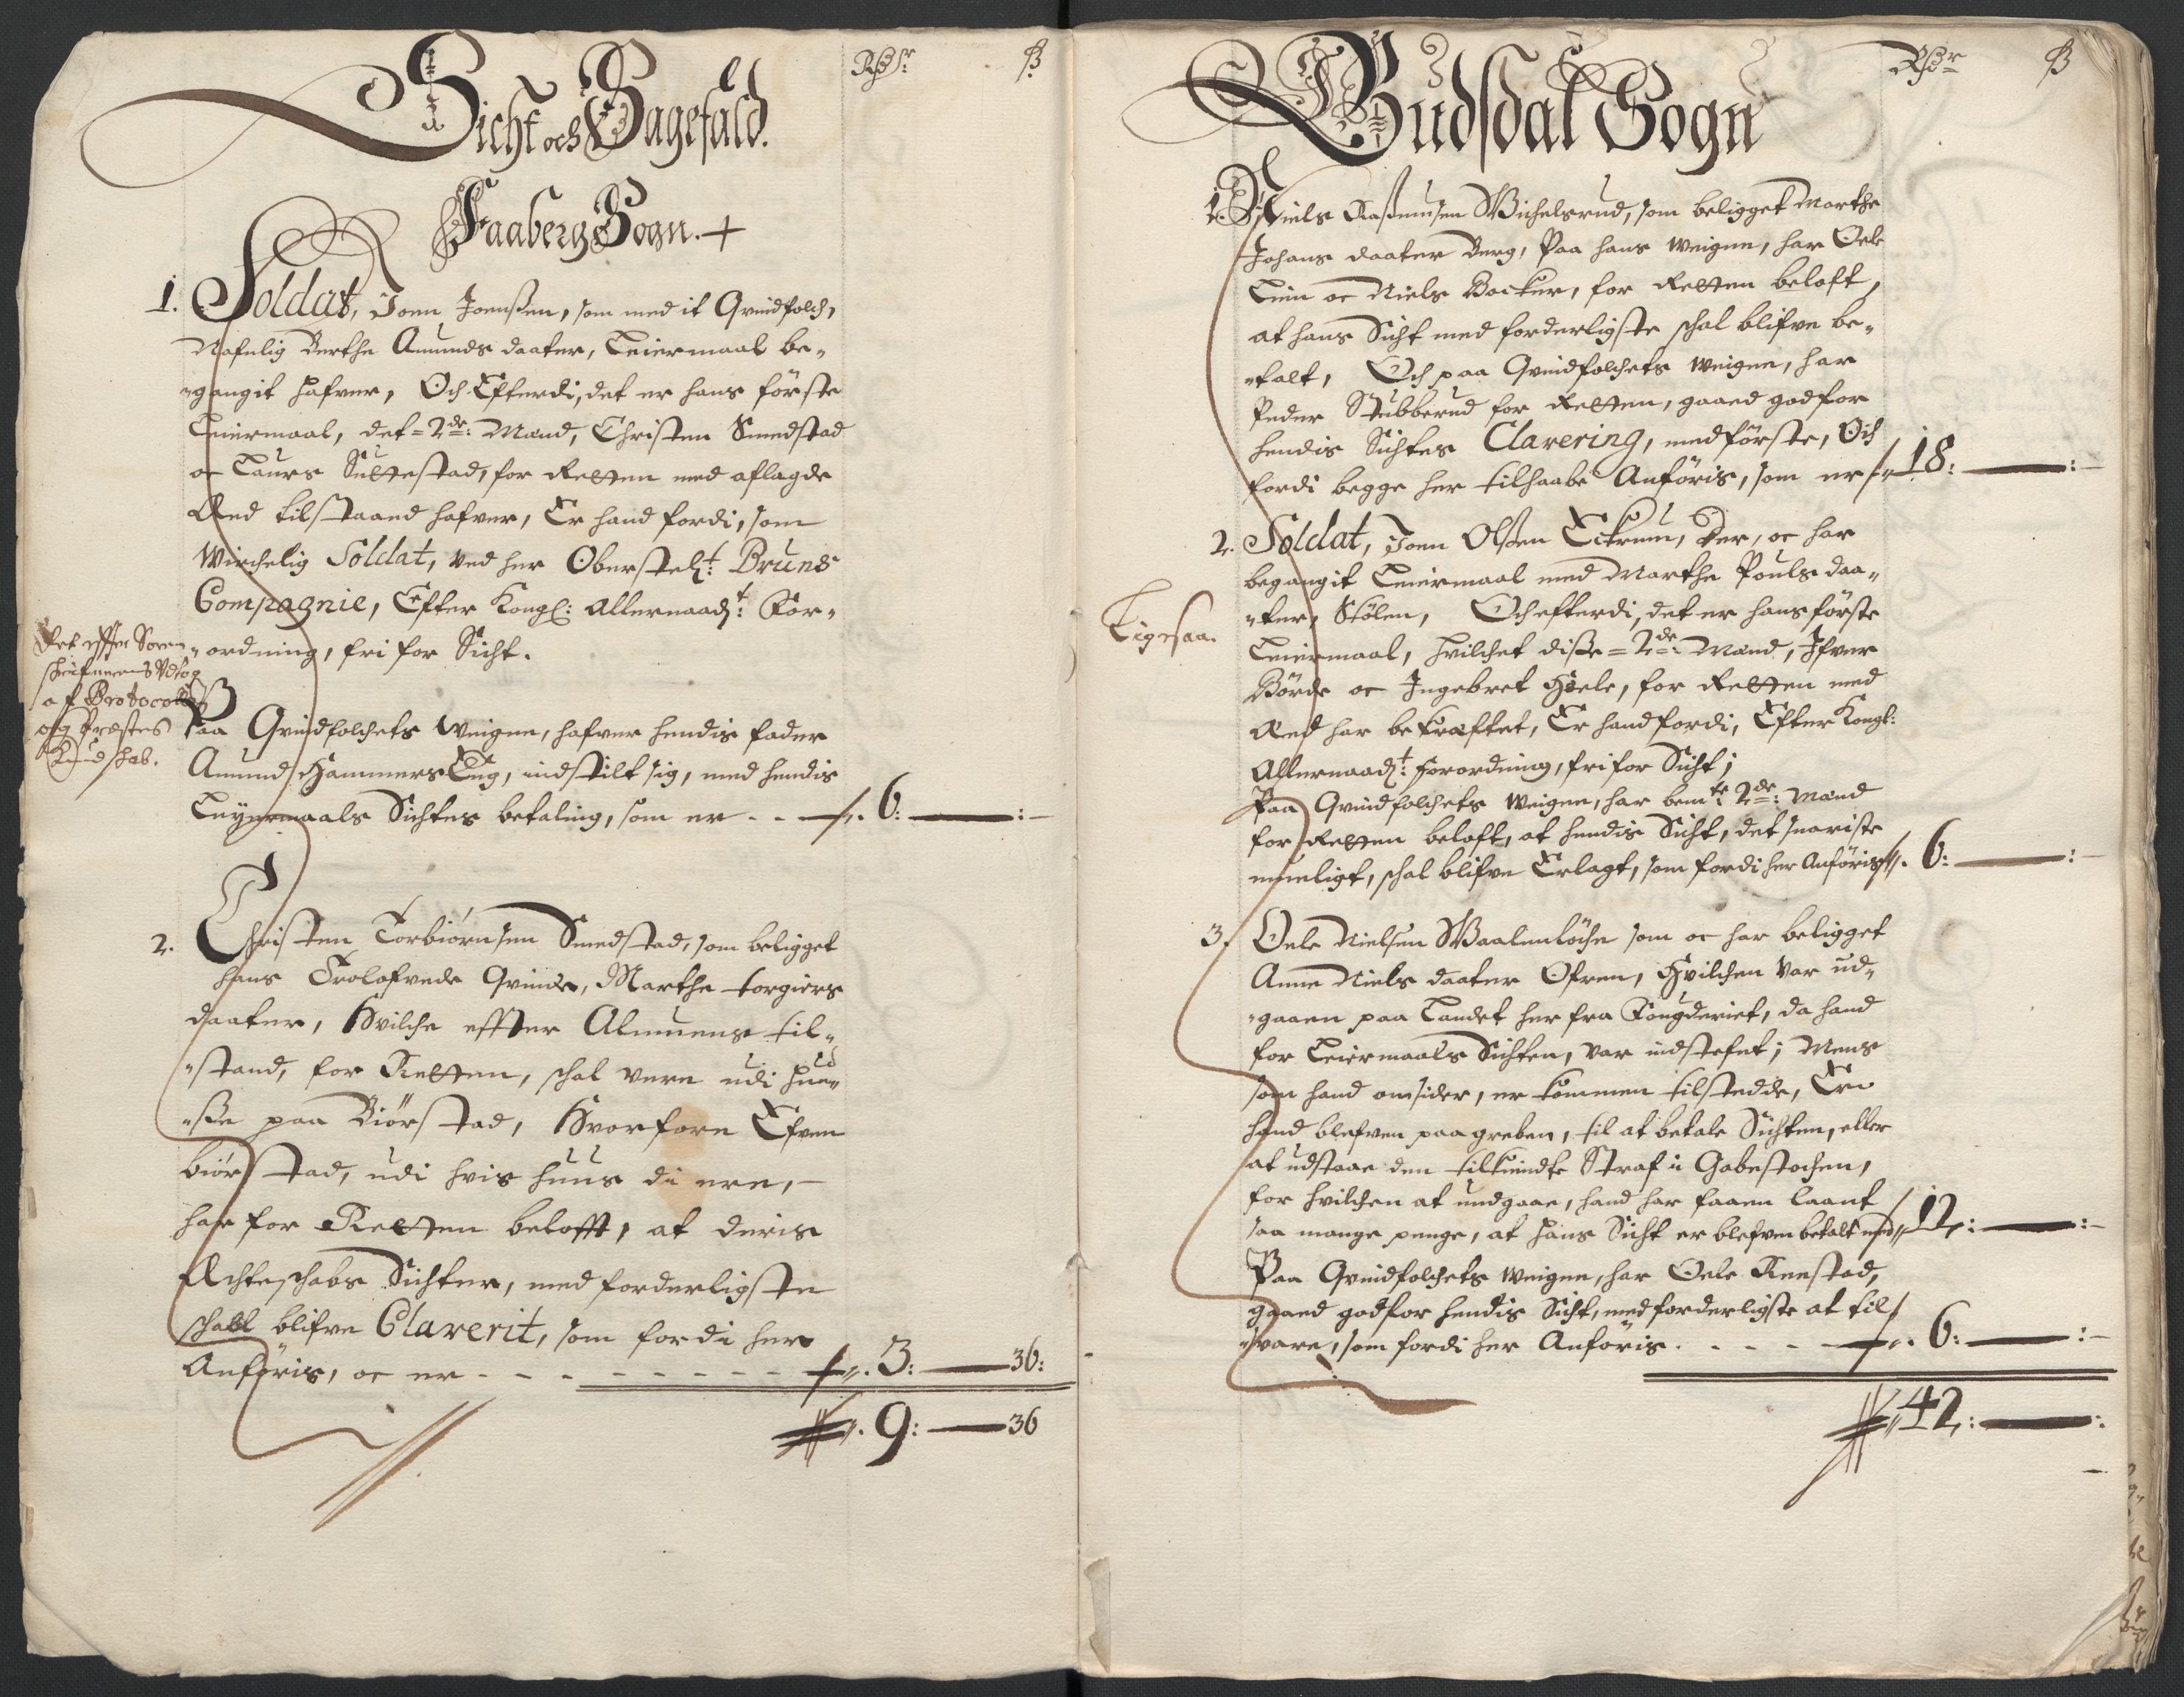 Sicht och Sagefald.
Rdr ß
Faaberg Sogn. +
1. Soldat, Joen Joenßen, som med it Qvindfolch,
Nafnlig Berthe Amunds daater, Leiermaal be-
gangit hafver, Och Efterdi, det er hans förste
Leiermaal, det = 2de: Mænd, Christen Smedstad
oc Laurs Suttestad, for Retten med aflagde
Æed tilstaaed hafver, Er hand fordi, som
Wirchelig Soldat, ved her Oberstelt: Bruns
Compagnie, Efter Kongl: Allernaadt: For-
ordning, fri for Sicht.
Det effter Soren-
schrifverens Udtog
af Protocollen
og Præstes
Kundschab.
Paa Qvindfolchets Weigne, hafver hendis fader
Amund Hammers Eng, indstilt sig, med hendis
Leyermaals Sichtes betaling, som er - - 6: — : -
2. Christen Torbiörnsen Smedstad, som beligget
hans Trolofvede Qvinde, Marthe torgiers
daater, Hvilche effter Almuens til-
stand, for Retten, schal vere udi huu-
ße paa Biörstad, Hvorfore Efven
biörstad, udi hvis huus di ere,
har for Retten belofft, at deris
Ächteschabs Sichter, med forderligste
schall blifve Clarerit, som fordi her
Anföris, oc er - - - - - - - - - 3: — 36:
9: — 36
Gudsdal Sogn
Rdr ß
1. Niels Raßmusen Wichelsrud, som beligget Marthe
Johans daater Berg, Paa hans weigne, har Oele
Lien oc Niels Backer, for Retten beloft,
at hans Sicht med forderligste schal blifve be-
talt, Och paa Qvindfolchets weigne, har
Peder Stubberud for Retten, gaaed godfor
hendis Sichtes Clarering, med förste, Och
fordi begge her tilhaabe Anföris, som er 18: — : -
2. Soldat, Joen Olsen Eckrum, Der, oc har
begangit Leiermaal med Marthe Pouls daa-
ter, Stölen, Och efterdi, det er hans förste
Leiermaal, hvilchet diße = 2de: Mænd, Ifver
Börde oc Ingebret Hoele, for Retten med
Æed har bekræftet, Er hand fordi, Efter Kongl:
Allernaadt: forordning, fri for Sicht;
Ligesaa.
Paa Qvindfolchets weigne, har bemte: 2de: Mænd
for Retten beloft, at hendis Sicht, det snariste
mueligt, schal blifve Erlagt, som fordi her Anföris 6: — : -
3. Oele Nielsen Waalenlöche som oc har beligget
Anne Niels daater Ofren, Hvilchen var ud-
gaaen paa Landet her fra Fougderiet, da hand
for Leiermaals Sichten, var indstefnt; Mens
som hand omsider, er kommen tilstedde, Er
hand blefven paagreben, til at betale Sichten, eller
at udstaae den tilkiendte Straf i Gabestochen,
for hvilchen at undgaae, hand har faaen laant
saa mange penge, at hans Sicht er blefven betalt med 12: — : -
Paa Qvindfolchets weigne, har Oele Reestad,
gaaed godfor hendis Sicht, med forderligste at til
svare, som fordi her Anföris. - - - - 6: — : -
42: — :